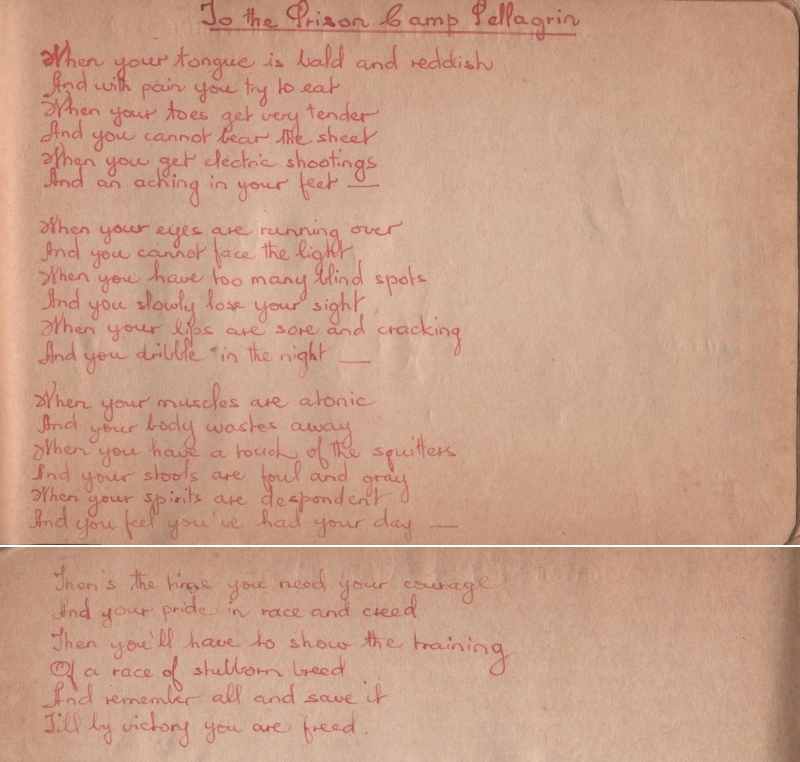 To the Prison Camp Pellagrin
When your tongue is bald and reddish
And with pain you try to eat
When your toes get very tender
And you cannot bear the sheet
When you get electric shootings
And an aching in your feet —
When your eyes are running over
And you cannot face the light
When you have too many blind spots
And you slowly lose your sight
When your lips are sore and cracking
And you dribble in the night —
When your muscles are atonic
And your body wastes away
When you have a touch of the squitters
And your stools are foul and gray
When your spirits are despondent
And you feel you've had your day —
Then's the time you need your courage
And your pride in race and creed
Then you'll have to show the training
Of a race of stubborn breed
And remember all and save it
Till by victory you are freed.